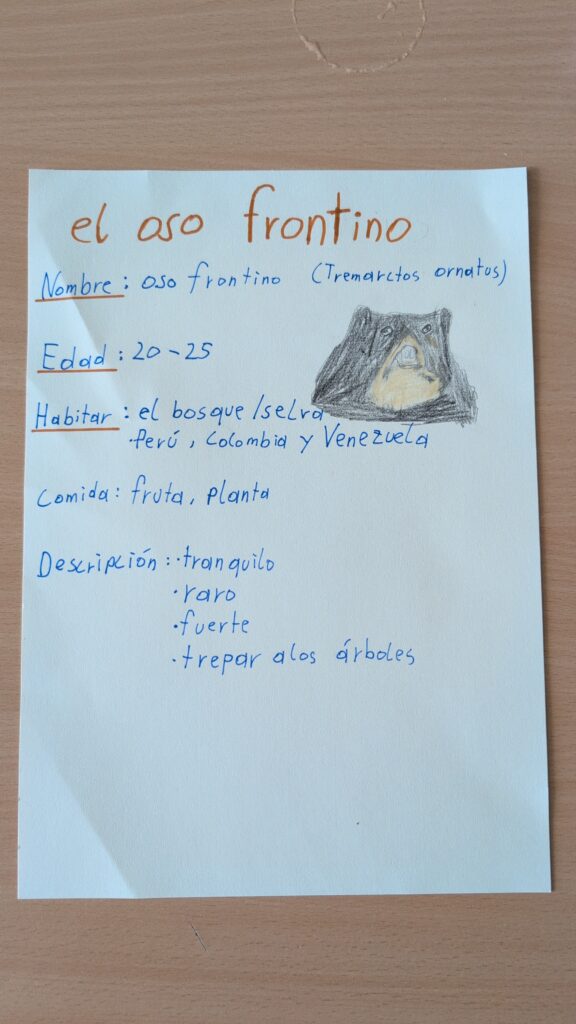 el oso frontino
Nombre : oso frontino (Tremarctos ornatus)
Edad : 20-25
Habitar : el bosque/selva
·Perú, Colombia y Venezuela
Comida: fruta, planta
Descripción : ·tranquilo
·raro
·fuerte
·trepar alos árboles